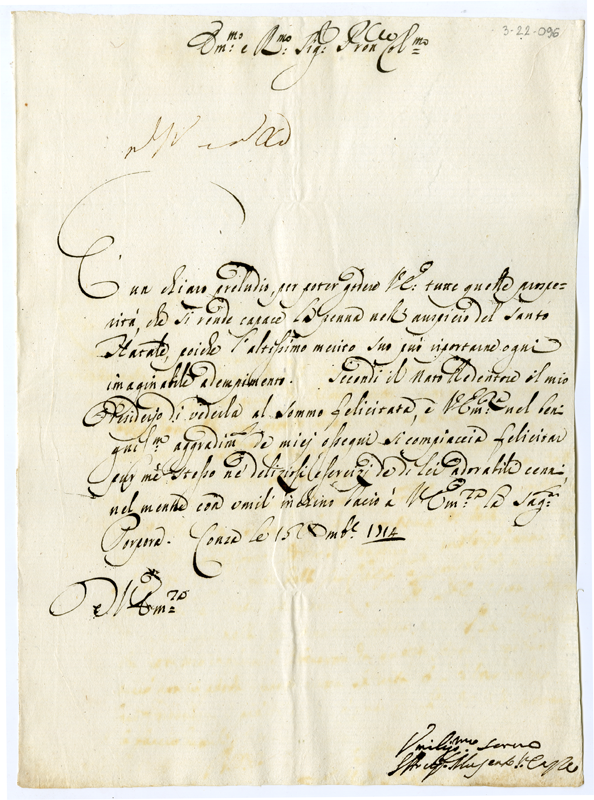 3-22-096
Em.mo e R.mo Sig.r Pron Col.mo
È un chiaro preludio, per poter godere V.E: tutte quelle prospe=
rità, che si rende capace la penna nell'auspicio del Santo
Natale, poiche l'altissimo merito suo può riportarne ogni
imaginabile adempimento. Secondi il Nato Redentore il mio
desiderio di vederla al sommo felicitata, e V.Em.za nel ben=
igniss.mo aggradim.to de miei ossequi si compiaccia felicitar
pur mè stesso né deliziosi esercizi de di Lei adorabili cenni,
nel mentre con umil' inchino bacio à V.Em.za la Sag.ra
Porpora. Conza le 15 Xmb.e 1714
D V.Em.za
Umiliss.mo servo